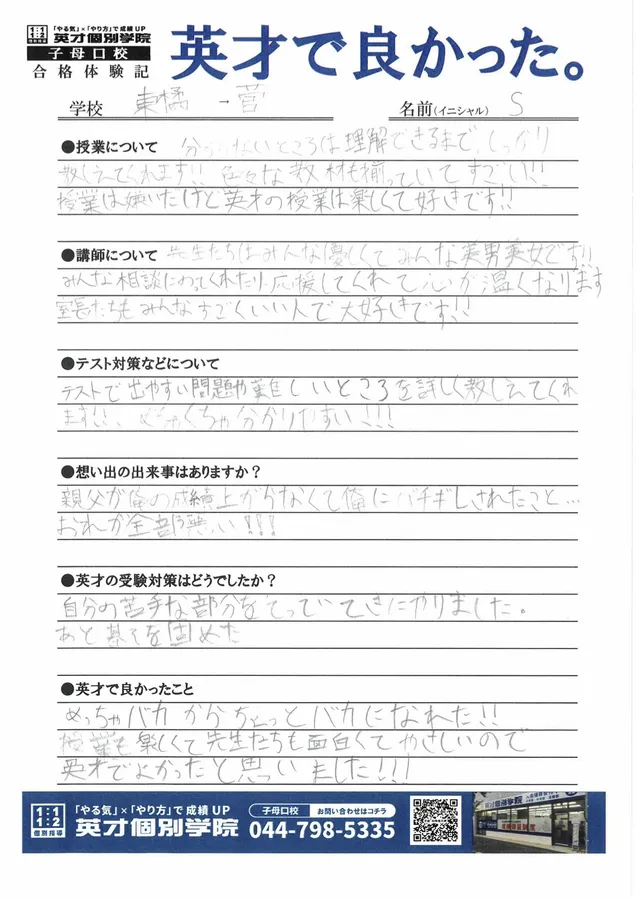 「やる気」×「やり方」で成績UP
1:1
1:2
個別指導
英才個別学院
子母口校
合格体験記
英才で良かった。
学校 東橘 → 菅
名前(イニシャル) S
●授業について 分からないところは理解できるまで、しっかり
教しえてくれます!! 色々な教材も揃っていてすごい!!
授業は嫌いだけど英才の授業は楽しくて好きです!!
●講師について 先生たちはみんな優しくてみんな美男美女です!!
みんな相談にのってくれたり、応援してくれて心が温くなります
室長たちもみんなすごくいい人で大好きです!!
●テスト対策などについて
テストで出やすい問題や難しいところを詳しく教しえてくれ
ます!!、めちゃくちゃ分かりやすい!!!
●想い出の出来事はありますか?
親父が俺の成績上がらなくて俺にバチギレされたこと…
おれが全部悪い!!!
●英才の受験対策はどうでしたか?
自分の苦手な部分をてっていてきにやりました。
あと基そを固めた
●英才で良かったこと
めっちゃバカからちょっとバカになれた!!
授業も楽しくて先生たちも面白くてやさしいので
英才でよかったと思いました!!!
1:1
1:2
個別指導
「やる気」×「やり方」で成績UP
英才個別学院
子母口校 お問い合わせはコチラ
044-798-5335
英才個別学院